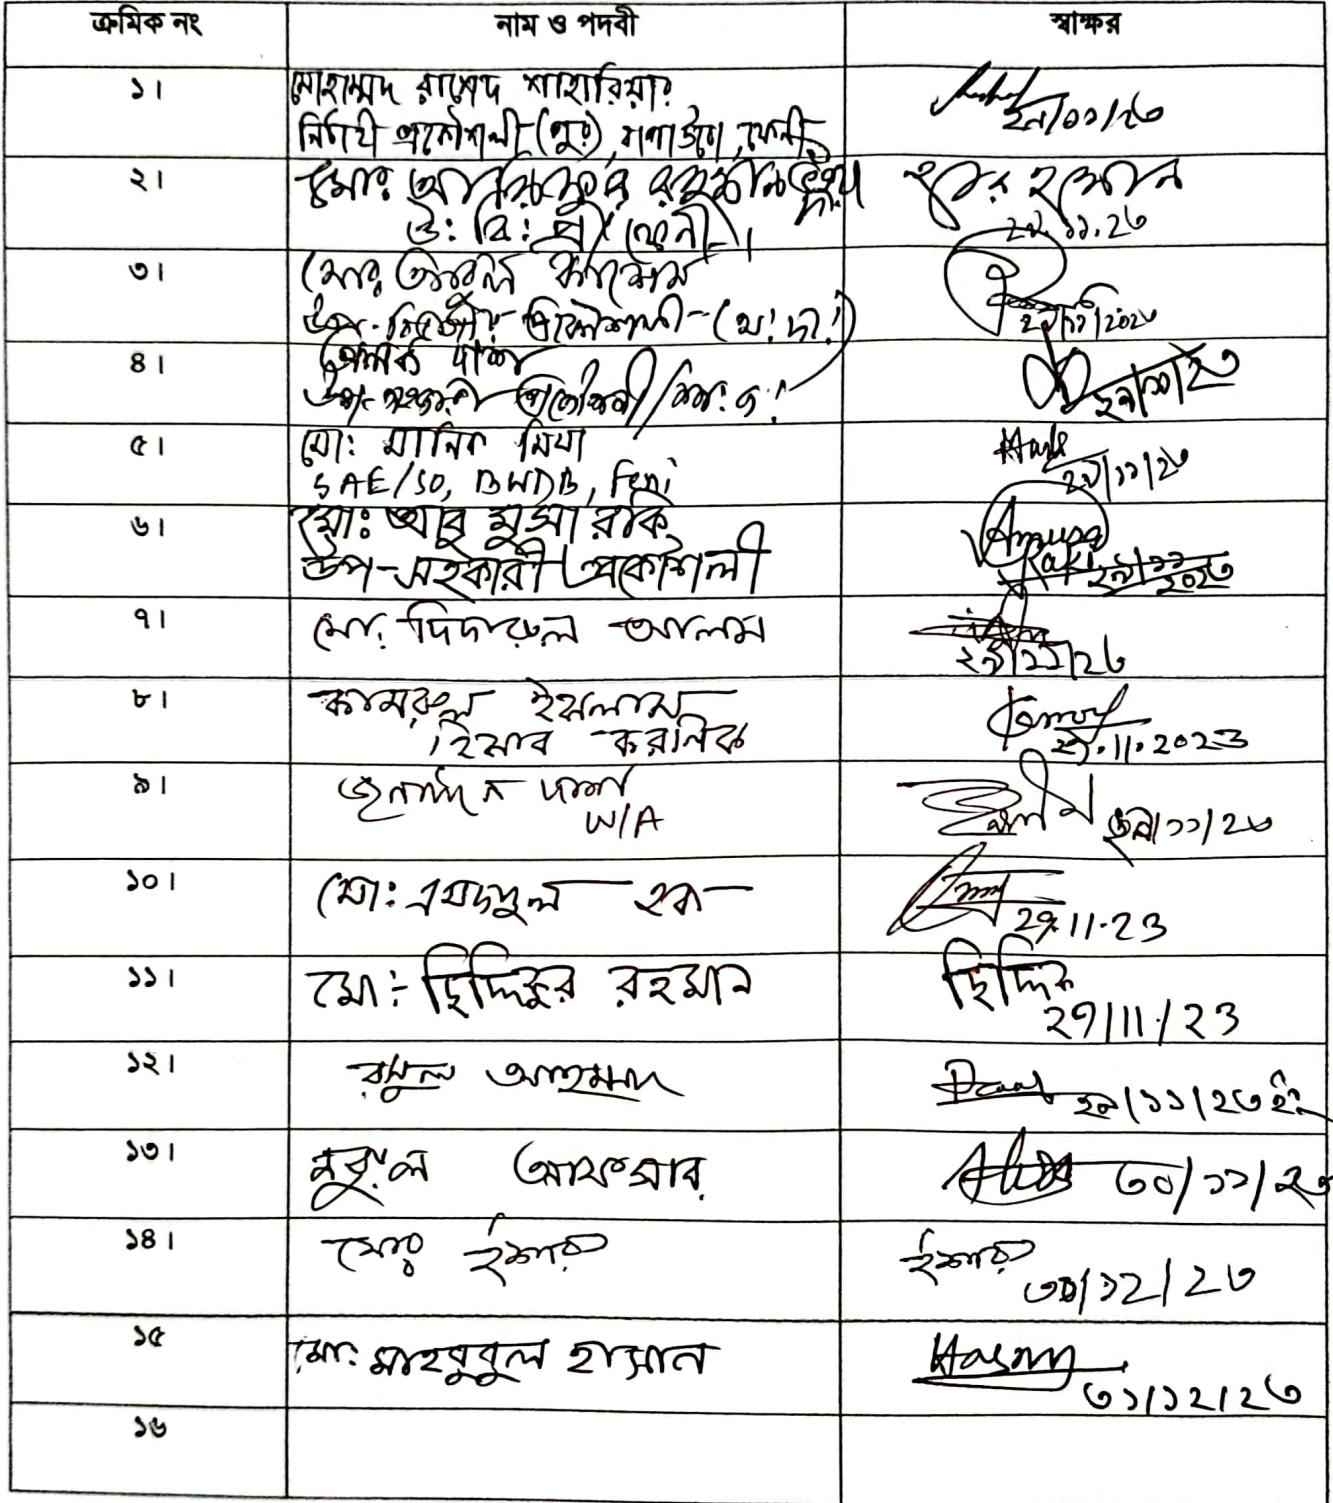 ক্রমিক নং নাম ও পদবী স্বাক্ষর
১।
মোহাম্মদ রাশেদ শাহারিয়ার
নির্বাহী প্রকৌশলী (পুর), বাপাউবো, ফেনী
২৯/১১/২৩
২।
মোঃ আরিফুর রহমান ভূঁইয়া
উঃ বিঃ প্রঃ ফেনী।
২৯.১১.২৩
৩।
মোঃ আবুল কাশেম
উপ-বিভাগীয় প্রকৌশলী-(অঃ দাঃ)
২৯/১১/২০২৩
৪।
দাশ
উপ-সহকারী প্রকৌশলী/
২৯/১১/২৩
৫।
মো: মানিক মিয়া
SAE/SO, BWDB, Feni
২৯/১১/২৩
৬।
মোঃ আবু মুসা রকি
উপ-সহকারী প্রকৌশলী
Amusa
Raki ২৯/১১
২০২৩
৭।
মোঃ দিদারুল আলম
২৯/১১/২৩
৮।
কামরুল ইসলাম
হিসাব করনিক
Kamrul
২৯.11.2023
৯।
জনার্দন দাশ
W/A
২৯/১১/২৩
১০।
মো: এমদাদুল হক
29.11.23
১১।
মো: ছিদ্দিকুর রহমান
ছিদ্দিক
29/11/23
১২।
রসুল আহমদ
২৯/১১/২৩ ইং
১৩।
নুরুল আফসার
৩০/১১/২৩
১৪।
মোঃ ইশারফ
ইশারফ
৩০/১২/২৩
১৫
মো: মাহবুবুল হাসান
Hasan
৩১/১২/২৩
১৬